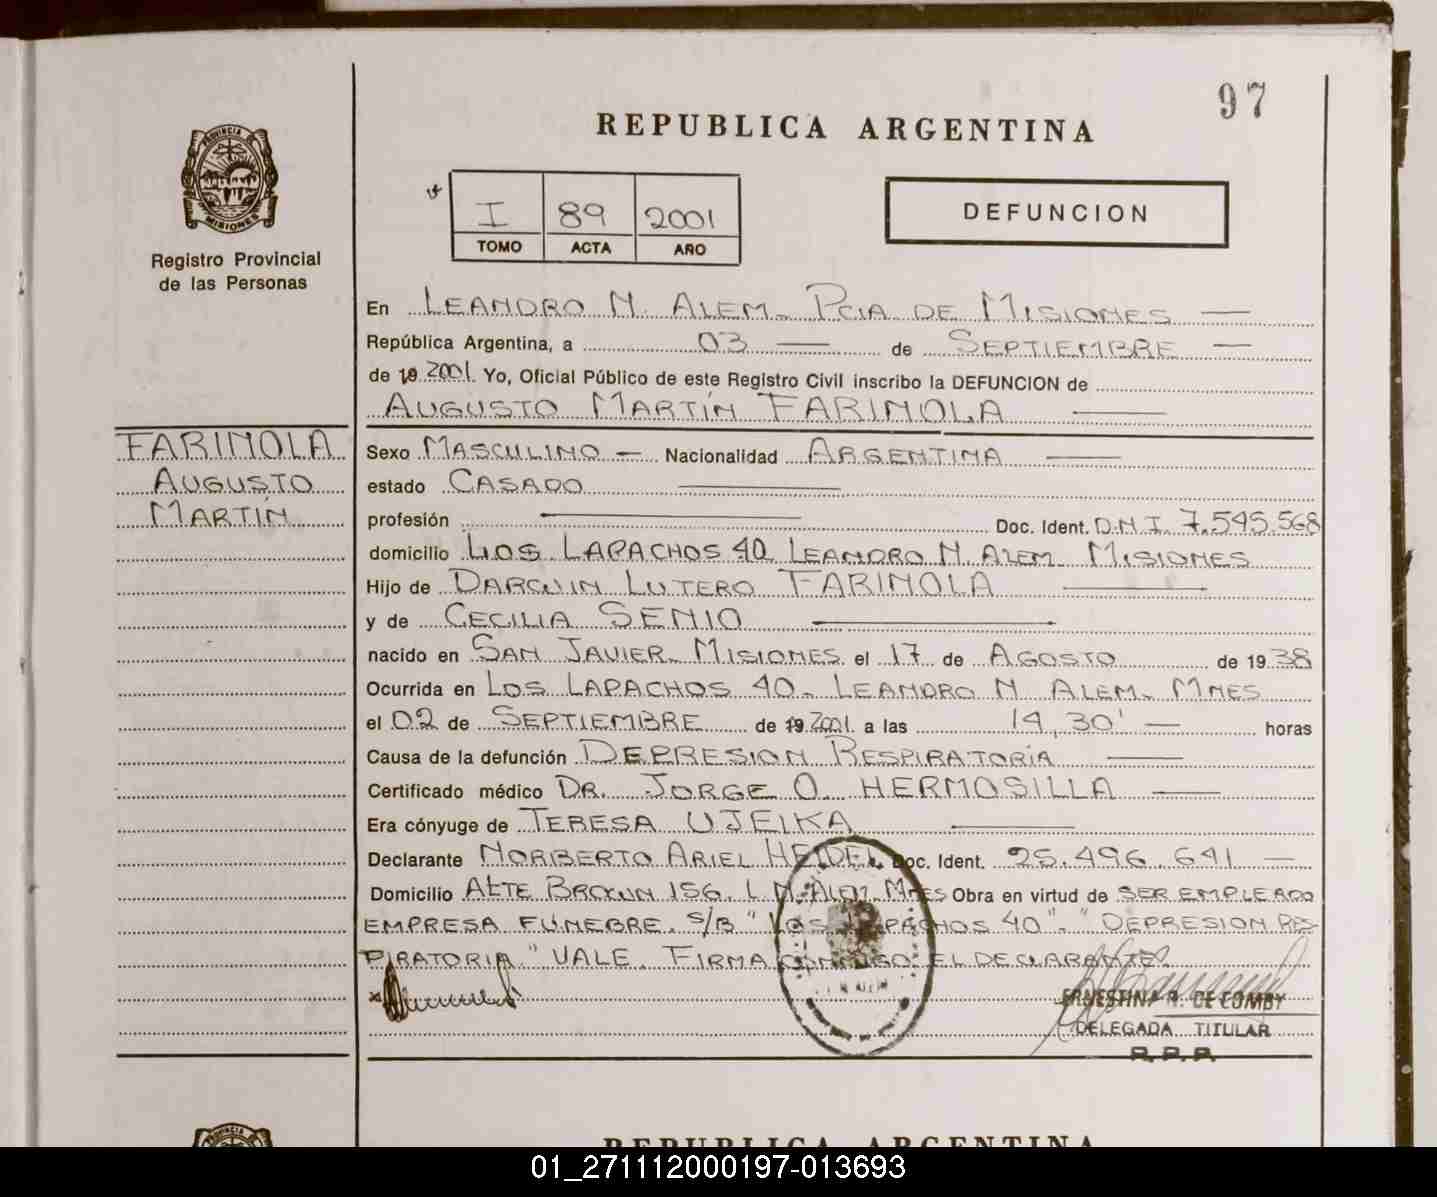 97
REPUBLICA ARGENTINA
PROVINCIA DE
MISIONES
I 89 2001
TOMO ACTA AÑO
DEFUNCION
Registro Provincial
de las Personas
En LEANDRO N. ALEM. PCIA DE MISIONES —
República Argentina, a 03 — de SEPTIEMBRE —
de 19 2001. Yo, Oficial Público de este Registro Civil inscribo la DEFUNCION de
AUGUSTO MARTÍN FARINOLA —
FARINOLA
AUGUSTO
MARTÍN
Sexo MASCULINO — Nacionalidad ARGENTINA —
estado CASADO —
profesión — Doc. Ident. D.N.I. 7.545.568
domicilio LOS LAPACHOS 40 LEANDRO N. ALEM MISIONES
Hijo de DARWIN LUTERO FARINOLA —
y de CECILIA SENIO —
nacido en SAN JAVIER. MISIONES el 17 de AGOSTO de 19 38
Ocurrida en LOS LAPACHOS 40. LEANDRO N ALEM. MNES
el 02 de SEPTIEMBRE de 19 2001. a las 14,30' — horas
Causa de la defunción DEPRESION RESPIRATORÍA —
Certificado médico DR. JORGE O. HERMOSILLA —
Era cónyuge de TERESA UJEIKA —
Declarante NORBERTO ARIEL HEIDEL. Doc. Ident. 25.496.641 —
Domicilio ALTE BROWN 156. L.N. ALEM. MNES Obra en virtud de SER EMPLEADO
EMPRESA FÚNEBRE. S/B "LOS LAPACHOS 40". "DEPRESION RES-
PIRATORIA" VALE. FIRMA CONMIGO EL DECLARANTE
ERNESTINA R. DE COMBY
DELEGADA TITULAR
R.P.P.
REPUBLICA ARGENTINA
01_271112000197-013693